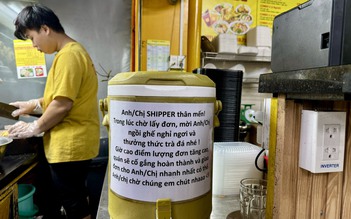 Anh/Chị SHIPPER thân mến!
Trong lúc chờ lấy đơn, mời Anh/Chị
ngồi ghế nghỉ ngơi và
thưởng thức trà đá nhé !
Giờ cao điểm lượng đơn tăng cao,
quán sẽ cố gắng hoàn thành và giao
đơn cho Anh/Chị nhanh nhất có thể,
Anh/chị chờ chúng em chút nhaaa
INVERTER